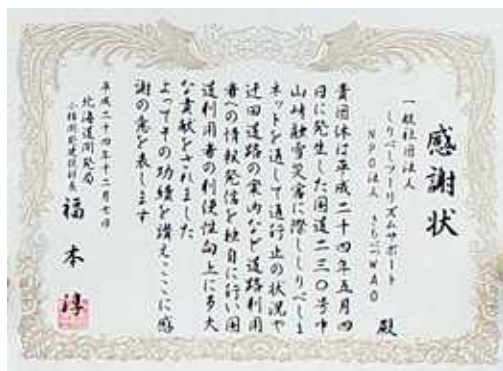 感謝状
一般社団法人
しりべしツーリズムサポート
NPO法人 きもべつWAO 殿
貴団体は平成二十四年五月四
日に発生した国道二三〇号中
山峠融雪災害に際ししりべしi
ネットを通して通行止の状況や
迂回道路の案内など道路利用
者への情報発信を独自に行い国
道利用者の利便性向上に多大
な貢献をされました
よってその功績を讃えここに感
謝の意を表します
平成二十四年十二月七日
北海道開発局
小樽開発建設部長
福本淳